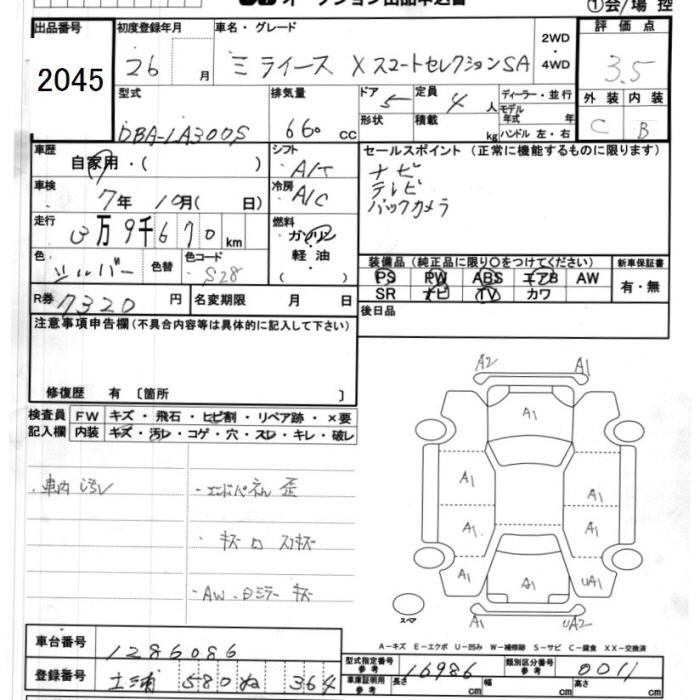 オークション出品申込書
①会/場 控
出品番号
2045
初度登録年月
26 月
車名・グレード
ミライース X スマートセレクションSA
2WD・4WD
評価点
3.5
型式
DBA-LA300S
排気量
660 cc
ドア
5
形状
定員
4 人
積載
kg
ディーラー・並行
モデル年式 年
ハンドル 左・右
外装 内装
C B
車歴
自家用・( )
シフト
A/T
セールスポイント (正常に機能するものに限ります)
ナビ
テレビ
バックカメラ
車検
7年 10月( 日)
冷房
A/C
走行
万9千670 km
燃料
ガソリン
軽・油
( )
色
シルバー
色替
色コード
S28
装備品 (純正品に限り〇をつけてください)
PS PW ABS エアB AW
SR ナビ TV カワ
新車保証書
有・無
R券 7320 円
名変期限 月 日
後日品
注意事項申告欄 (不具合内容等は具体的に記入して下さい)
修復歴 有 〔箇所 〕
検査員記入欄
FW キズ・飛石・ヒビ割・リペア跡・×要
内装 キズ・汚レ・コゲ・穴・スレ・キレ・破レ
・車内 汚レ
・エンドパネル 歪
・キズ
・AW・ミラー キズ
A2 A1
A1
A1 A1
A1 A1
A1 A1 UA1
A1 UA2
スペア
A－キズ E－エクボ U－凹み W－補修跡 S－サビ C－腐食 XX－交換済
車台番号
1286086
登録番号
土浦 580 ぬ 364
型式指定番号 参考
16986
類別区分番号 参考
0011
車庫証明用 参考
長さ cm 幅 cm 高さ cm